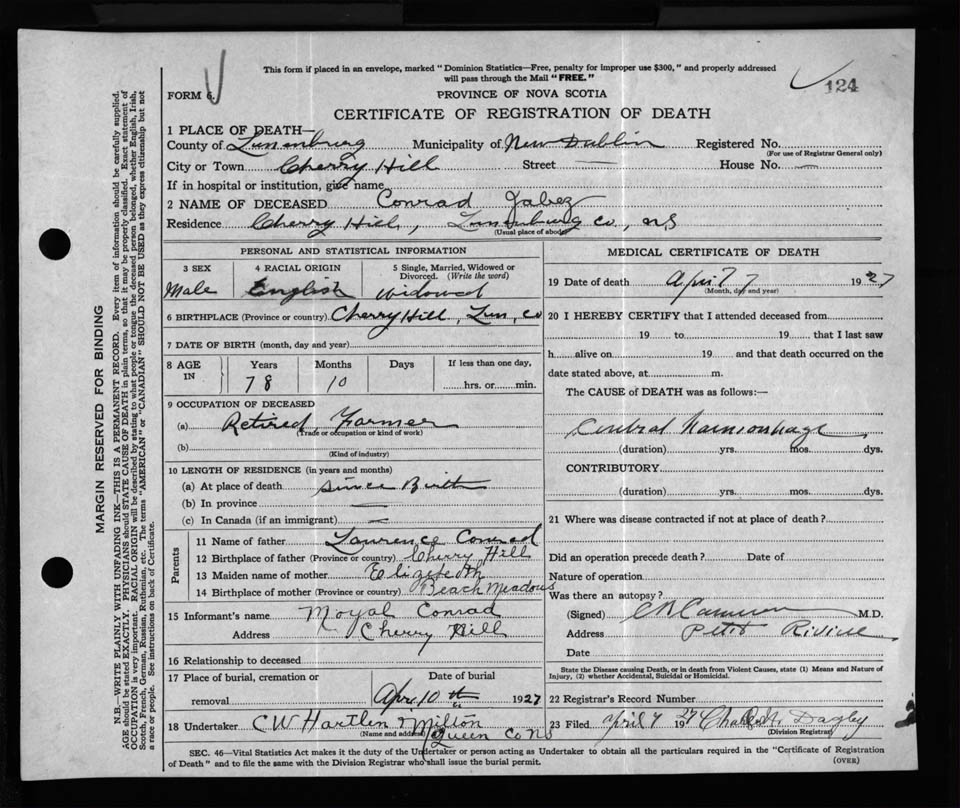 This form if placed in an envelope, marked "Dominion Statistics—Free, penalty for improper use $300," and properly addressed
will pass through the Mail "FREE."
124
FORM 6.
PROVINCE OF NOVA SCOTIA
CERTIFICATE OF REGISTRATION OF DEATH
1 PLACE OF DEATH—
County of Lunenburg Municipality of New Dublin Registered No.
(For use of Registrar General only)
City or Town Cherry Hill Street — House No.
If in hospital or institution, give name
2 NAME OF DECEASED Conrad Jabez
Residence Cherry Hill, Lunenburg Co, NS
(Usual place of abode)
PERSONAL AND STATISTICAL INFORMATION
3 SEX 4 RACIAL ORIGIN 5 Single, Married, Widowed or
Divorced. (Write the word)
Male English Widowed
6 BIRTHPLACE (Province or country) Cherry Hill, Lun, Co
7 DATE OF BIRTH (month, day and year)
8 AGE Years Months Days If less than one day,
IN 78 10 hrs. or min.
9 OCCUPATION OF DECEASED
(a) Retired Farmer
(Trade or occupation or kind of work)
(b)
(Kind of industry)
10 LENGTH OF RESIDENCE (in years and months)
(a) At place of death since Birth
(b) In province —
(c) In Canada (if an immigrant) —
Parents
11 Name of father Lawrence Conrad
12 Birthplace of father (Province or country) Cherry Hill
13 Maiden name of mother Elizabeth
14 Birthplace of mother (Province or country) Beach Meadows
15 Informant's name Moyal Conrad
Address Cherry Hill
16 Relationship to deceased
17 Place of burial, cremation or Date of burial
removal Apr, 10 th 1927
18 Undertaker C W Hartlen Milton
(Name and address) Queen Co NS
MEDICAL CERTIFICATE OF DEATH
19 Date of death April 7 1927
(Month, day and year)
20 I HEREBY CERTIFY that I attended deceased from
19 to 19 that I last saw
h alive on 19 and that death occurred on the
date stated above, at m.
The CAUSE of DEATH was as follows:—
(duration) yrs. mos. dys.
CONTRIBUTORY
(duration) yrs. mos. dys.
21 Where was disease contracted if not at place of death?
Did an operation precede death? Date of
Nature of operation
Was there an autopsy?
(Signed) Cameron M.D.
Address Petit Riviere
Date
State the Disease causing Death, or in death from Violent Causes, state (1) Means and Nature of
Injury, (2) whether Accidental, Suicidal or Homicidal.
22 Registrar's Record Number
23 Filed April 9 27 Charles A. Dagley
(Division Registrar)
SEC. 46—Vital Statistics Act makes it the duty of the Undertaker or person acting as Undertaker to obtain all the particulars required in the "Certificate of Registration
of Death" and to file the same with the Division Registrar who shall issue the burial permit.
(OVER)
MARGIN RESERVED FOR BINDING
N.B.—WRITE PLAINLY WITH UNFADING INK—THIS IS A PERMANENT RECORD. Every item of information should be carefully supplied.
AGE should be stated EXACTLY. PHYSICIANS should STATE CAUSE OF DEATH in plain terms, so that it may be properly classified. Exact statement of
OCCUPATION is very important. RACIAL ORIGIN will be described by stating to what people or tongue the deceased person belonged, whether English, Irish,
Scotch, French, German, Russian, Ruthenian, etc. The terms "AMERICAN" or "CANADIAN" SHOULD NOT BE USED as they express citizenship but not
a race or people. See instructions on back of Certificate.